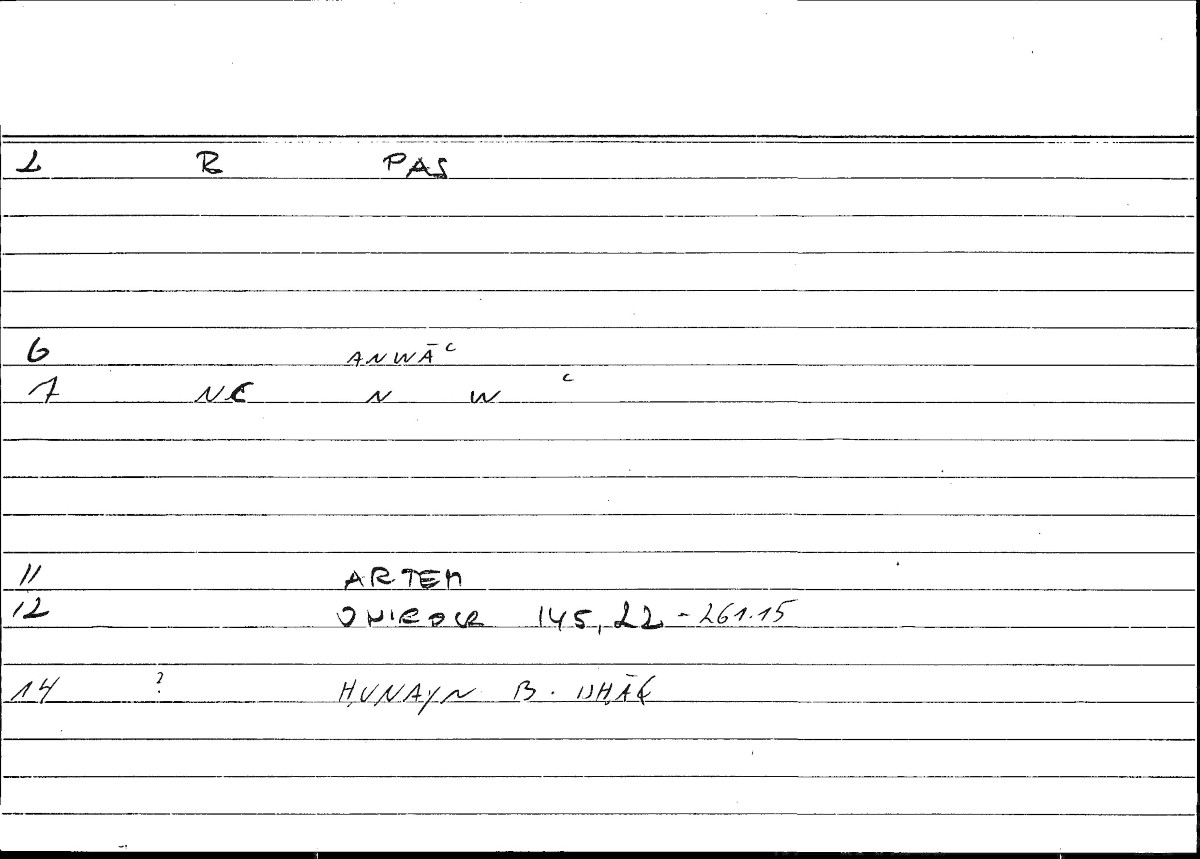 1 B PAS
6 ANWĀʿ
7 NE N W ʿ
11 ARTEM
12 ONIROCR 145,22-261.15
14 ? ḤUNAYN B. ISḤĀḲ